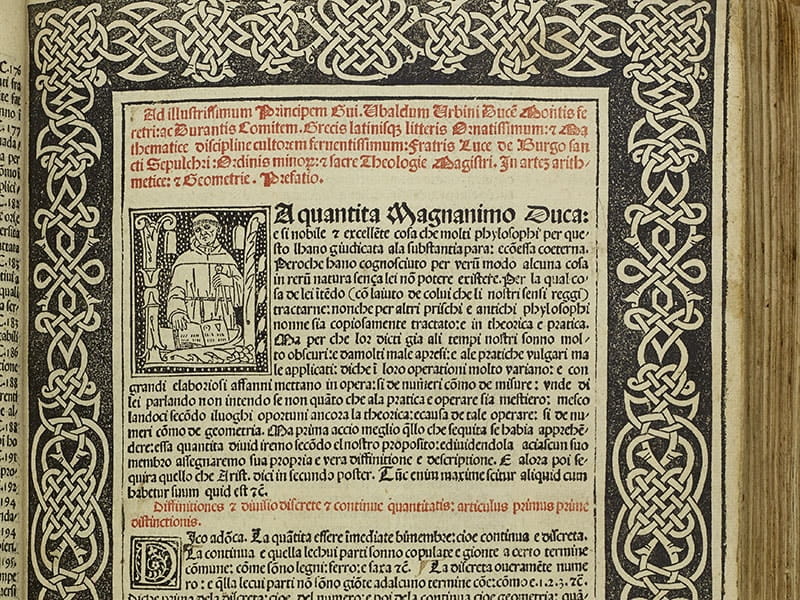 Ad illustrissimum Principem Gui. Ubaldum Urbini Ducē Montis fe
retri: ac Durantis Comitem. Grecis latinisqꝫ litteris Ornatissimum: ⁊ Ma
thematice discipline cultorem feruentissimum: Fratris Luce de Burgo san
cti Sepulchri: Ordinis minoꝝ: ⁊ sacre Theologie Magistri. In arteꝫ arith-
metice: ⁊ Geometrie. Prefatio.
A quantita Magnanimo Duca:
e si nobile ⁊ excellēte cosa che molti phylosophi per que
sto lhano giudicata ala substantia para: ecōessa coeterna.
Peroche hano cognosciuto per verū modo alcuna cosa
in rerū natura sença lei nō potere existere. Per la qual co
sa de lei itēdo (cō laiuto de colui che li nostri sensi reggi)
tractarne: nonche per altri prischi e antichi phylosophi
nonne sia copiosamente tractato: e in theorica e pratica.
Ma per che lor dicti gia ali tempi nostri sonno mol
to obscuri: e damolti male apresi: e ale pratiche vulgari ma
le applicati: dicħe ī loro operationi molto variano: e con
grandi elaboriosi affanni mettano in opera: si de nuēri cōmo de misure: vnde di
lei parlando non intendo se non quāto che ala pratica e operare sia mestiero: mesco
landoci secōdo iluoghi oportuni ancora la theorica: ecausa de tale operare: si de nu-
meri cōmo de geometria. Ma prima accio meglio q̄llo che sequita se habia apprehē
dere: essa quantita diuid iremo secōdo el nostro proposito: ediuidendola aciascun suo
membro assegnaremo sua propria e vera diffinitione e descriptione. E alora poi se-
quira quello che Arist. dici in secundo poster. Tūc enim maxime scitur aliquid cum
habetur suum quid est ⁊ē.
Diffinitiones ⁊ diuisio discrete ⁊ continue quantitatis: articulus primus prime
distinctionis.
Dico adōca. La quātita essere īmediate bimembre: cioe continua e discreta.
La continua e quella lechui parti sonno copulate e gionte a certo termine
cōmune: cōme sōno legni: ferro: e saxa ⁊ē. La discreta oueramēte nume
ro: e q̄lla lecui parti nō sōno giōte ad alcuno termine cōe: cōmo e.1.2.3.⁊ē.